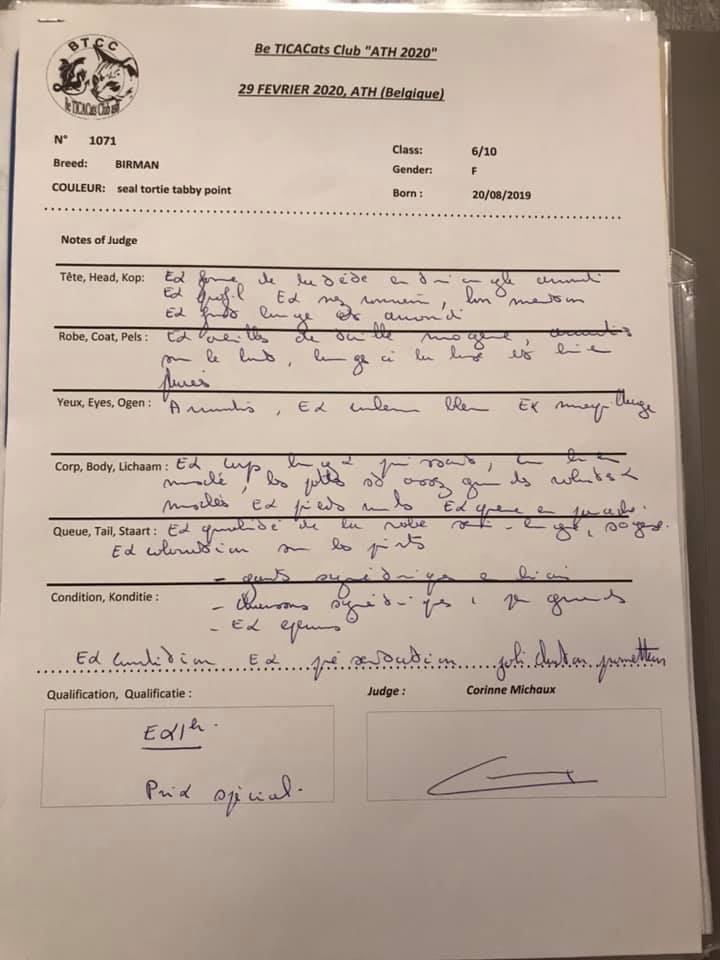 BTCC
be TICACats Club asbl
Be TICACats Club "ATH 2020"
29 FEVRIER 2020, ATH (Belgique)
N° 1071
Class: 6/10
Breed: BIRMAN
Gender: F
COULEUR: seal tortie tabby point
Born : 20/08/2019
Notes of Judge
Tête, Head, Kop: Ex forme de la tête en triangle arrondi
Ex profil Ex nez romain, bon menton
Ex front large et arrondi
Robe, Coat, Pels : Ex oreilles de taille moyenne, arrondies
sur le bout, large à la base et bien
Yeux, Eyes, Ogen : Arrondis, Ex couleur bleu Ex
Corp, Body, Lichaam : Ex corps long et puissant, bien
musclé, les pattes st assez grandes robustes &
musclés Ex pieds ronds Ex queue en panache.
Queue, Tail, Staart : Ex qualité de la robe
Ex coloration sur les points
- gants symétriques
Condition, Konditie : - chaussons symétriques,
- Ex éperons
Ex condition Ex présentation joli chaton prometteur
Qualification, Qualificatie :
Judge : Corinne Michaux
Prix spécial.